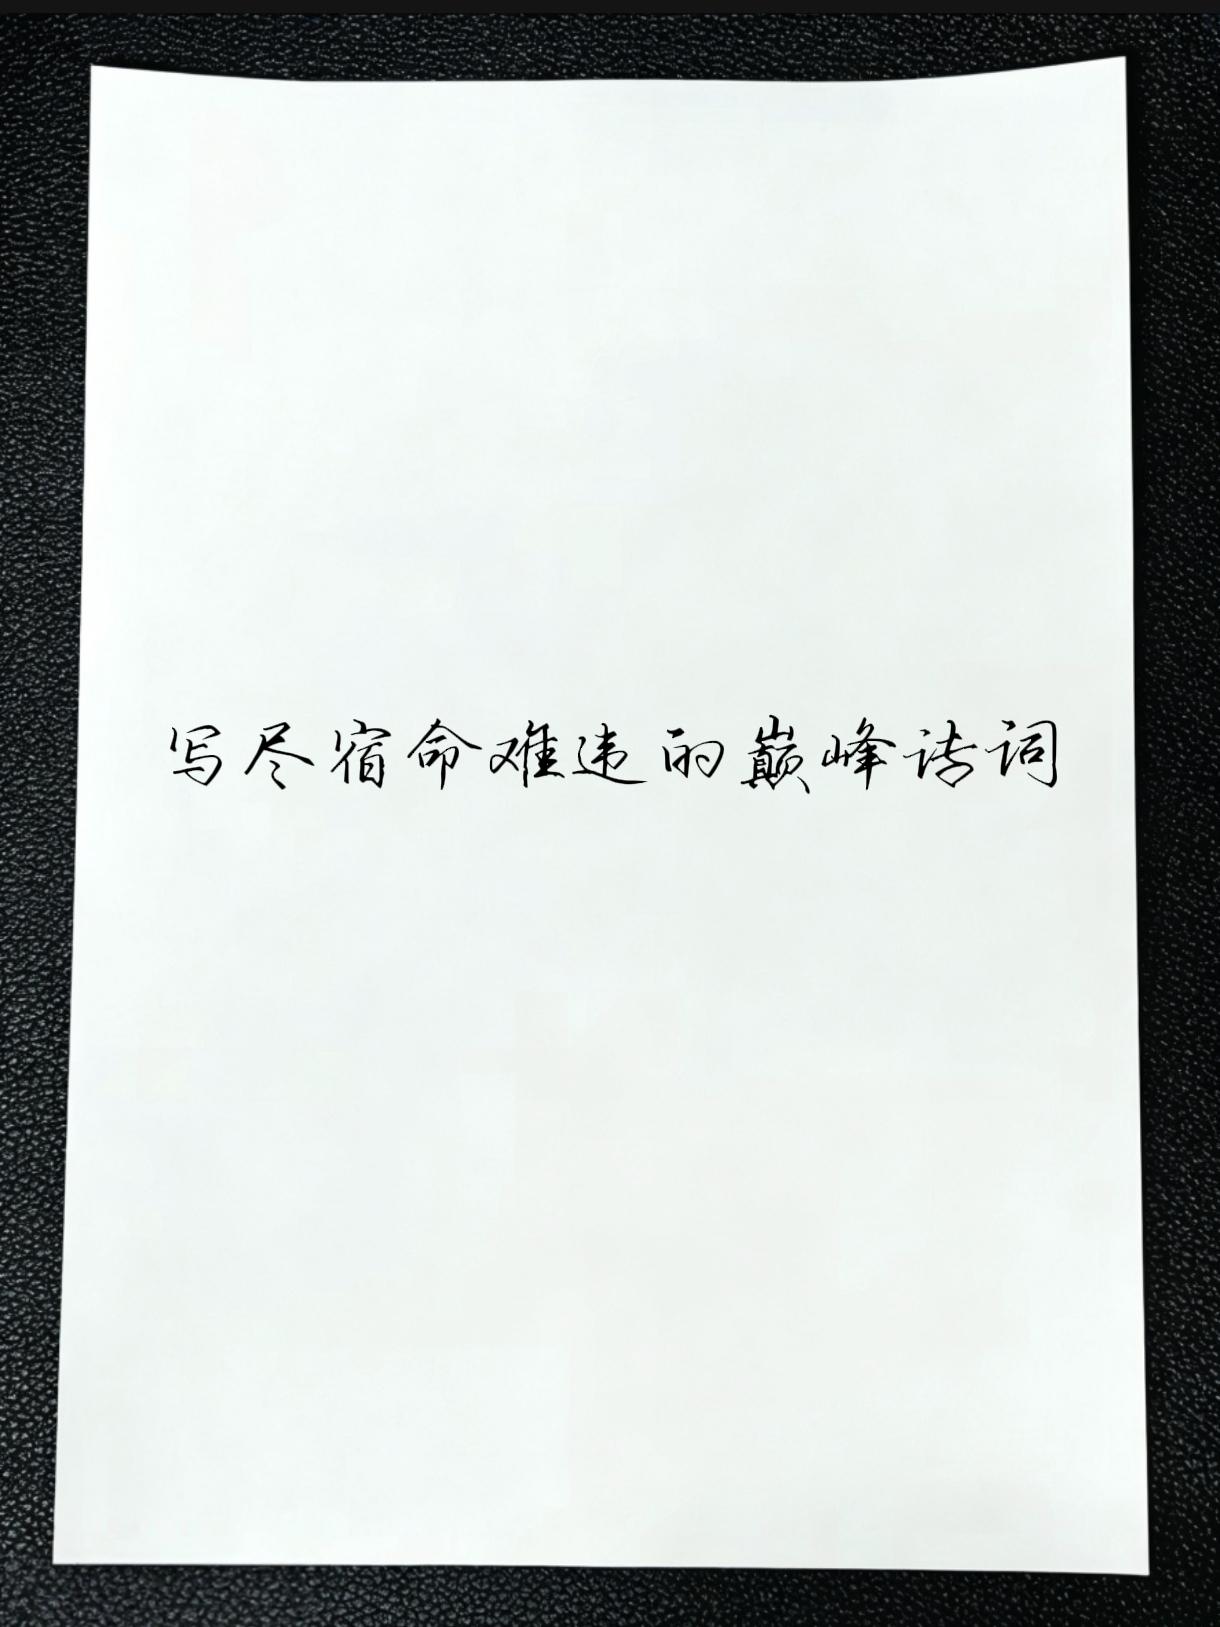 写尽宿命难违的巅峰诗词